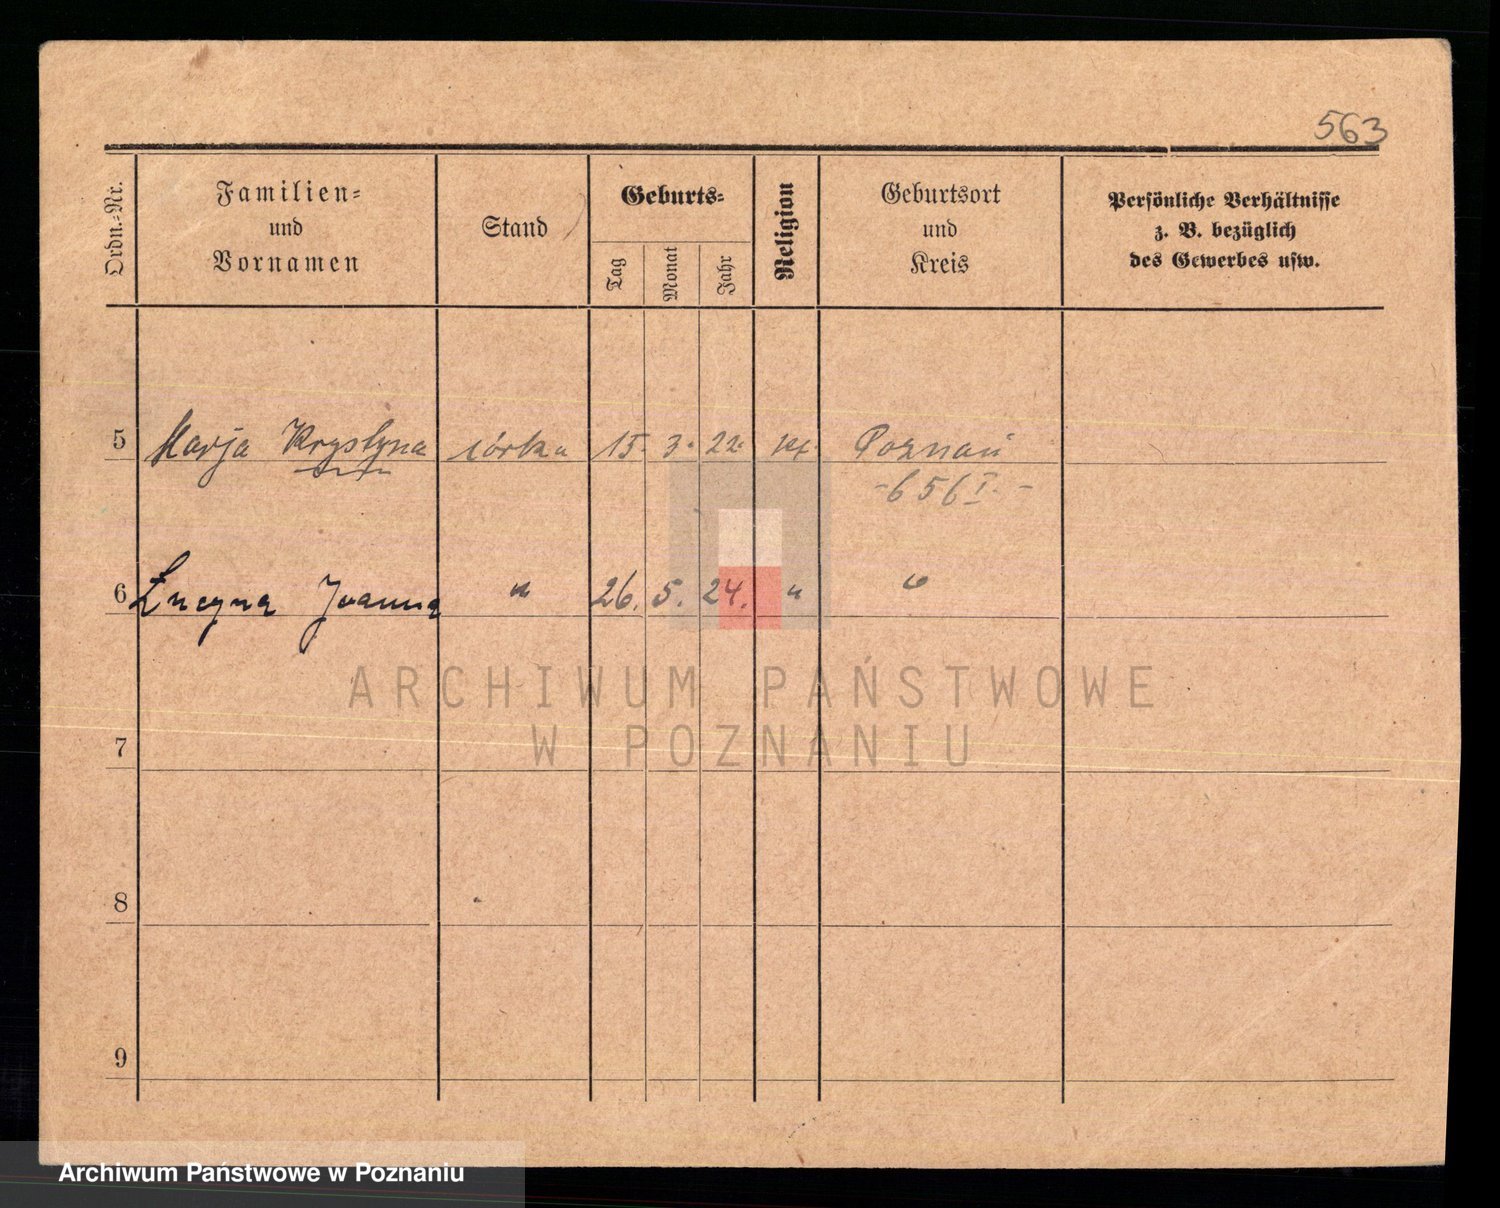 563
Ordn.-Nr.
Familien-
und
Vornamen
Stand
Geburts-
Tag
Monat
Jahr
Religion
Geburtsort
und
Kreis
Persönliche Verhältnisse
z. B. bezüglich
des Gewerbes usw.
5 Marja Krystyna córka 15. 3. 22. kt. Poznań
-656 I. -
6 Łucyna Joanna " 26. 5. 24. " "
ARCHIWUM PAŃSTWOWE
W POZNANIU
7
8
9
Archiwum Państwowe w Poznaniu